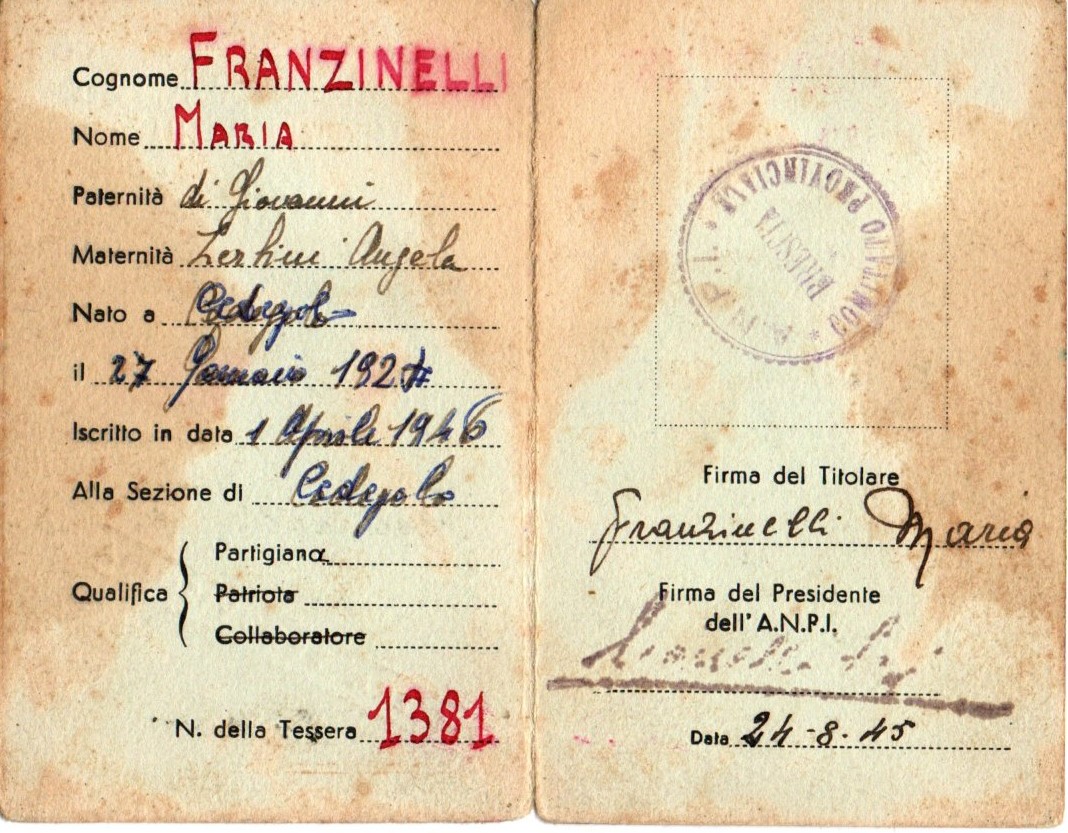 Cognome FRANZINELLI
Nome MARIA
Paternità di Giovanni
Maternità Zerlini Angela
Nato a Cedegolo
il 27 Gennaio 192
Iscritto in data 1 Aprile 1946
Alla Sezione di Cedegolo
Qualifica
Partigiana
Patriota
Collaboratore
N. della Tessera 1381
A.N.P.I. * COMITATO PROVINCIALE *
BRESCIA
Firma del Titolare
Franzinelli Maria
Firma del Presidente
dell' A.N.P.I.
Data 24-8-45